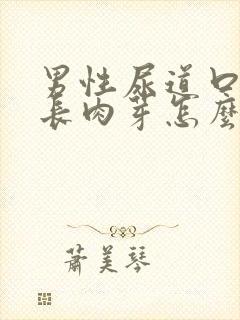 男性尿道口
長肉芽怎麼
蕭美琴